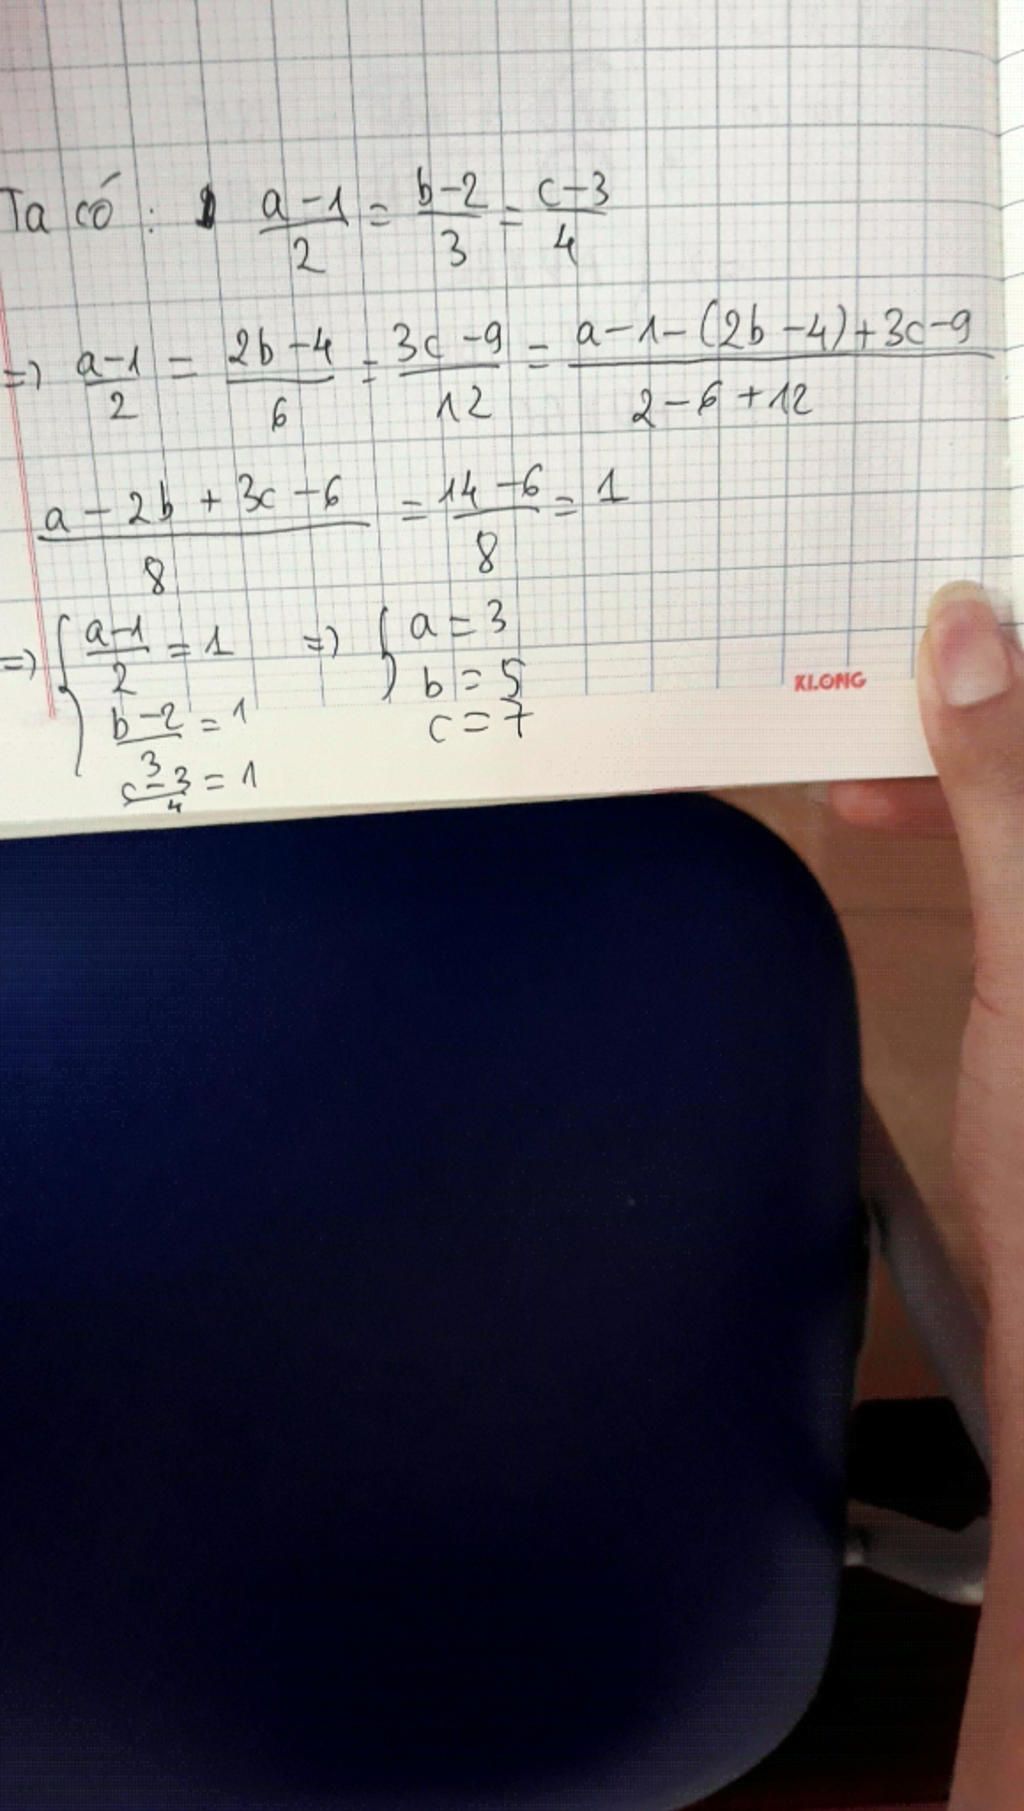 Ta có : a-1/2 = b-2/3 = c-3/4
=> a-1/2 = 2b-4/6 = 3c-9/12 = a-1-(2b-4)+3c-9/2-6+12
a-2b+3c-6/8 = 14-6/8 = 1
=> { a-1/2 = 1 => { a = 3
b-2/3 = 1 b = 5
c-3/4 = 1 c = 7
KLONG